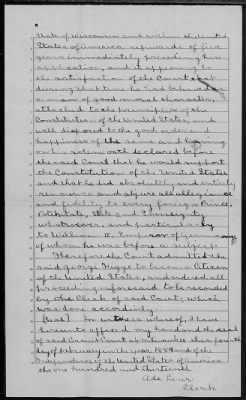 State of Wisconsin and within the United
States of America upwards of five
years immediately preceding his
application, and it appearing to
the satisfaction of the Court that
during that time he had behaved as
a man of good moral character,
attached to the principles of the
Constitution of the United States, and
well disposed to the good order and
happiness of the same and having
on his solemn oath declared before
the said Court that he would support
the Constitution of the United States
and that he did absolutely and entirely
renounce and abjure all allegiance
and fidelity to every foreign Prince,
Potentate, State and Sovereignty
whatsoever, and particularly
to William II Emperor of Germany
of whom he was before a subject.
Therefore the Court admitted the
said George to become a Citizen
of the United States, and ordered all
proceedings aforesaid to be recorded
by the Clerk of said Court, which
was done accordingly.
(Seal) In witness whereof, I have
hereunto affixed my hand and the seal
of said Court at Milwaukee this fourth
day of February in the year 1889 and of the
Independence of the United States of America
the one hundred and thirteenth
Clerk